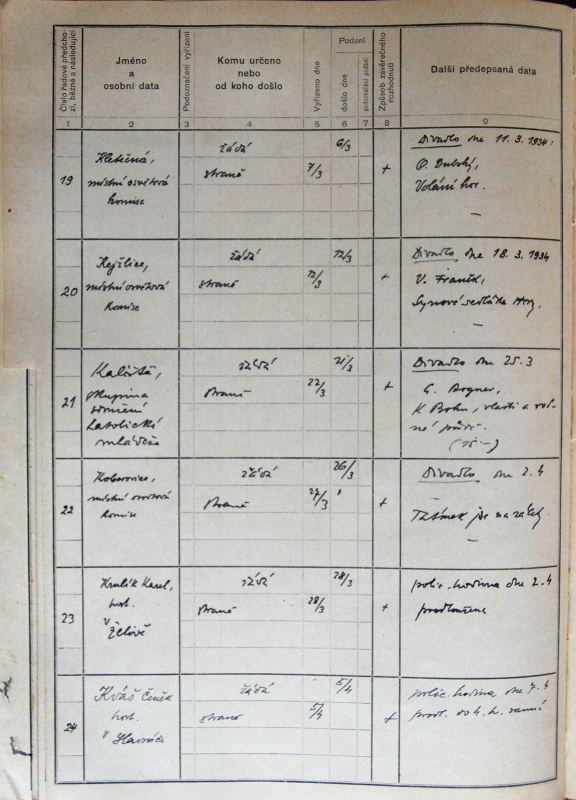 Číslo řadové předcho-
zí, běžné a následující
Jméno
a
osobní data
Podoznačení vyřízení
Komu určeno
nebo
od koho došlo
Vyřízeno dne
Podání
došlo dne
Způsob závěrečného
rozhodnutí
Další předepsaná data
1 2 3 4 5 6 7 8 9
19
Kletečná,
místní osvětová
komise
žádá
straně
7/3
6/3
+
Divadlo dne 11.3.1934:
O. Dubský,
Volání hor.
—
20
Kejžlice,
místní osvětová
komise
žádá
straně
12/3
12/3
+
Divadlo dne 18.3.1934
V. Franěk,
Synové sedláka
—
21
Kaliště,
skupina
sdružení
katolické
mládeže
žádá
straně
22/3
21/3
+
Divadlo dne 25.3
G. Bogner,
K Bohu, vlasti a rod-
né půdě.
(15.-)
22
Koberovice,
místní osvětová
komise
žádá
straně
27/3
26/3
+
Divadlo dne 2.4
Tatínek jde na zálety.
—
23
Krulík Karel,
host.
v
Želivě
žádá
straně
28/3
28/3
+
polic. hodina dne 2.4
prodloužena
24
Kváš Čeněk
host.
v
žádá
straně
5/4
5/4
+
polic. hodina dne 7.4
prodl. do 4. h. ranní